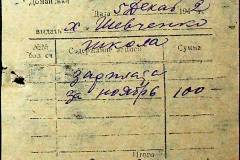 Дата 5 Декаб 194
выдать х. Шевченко
школа
Сумма
зарплата
за ноябрь 100-
Итого